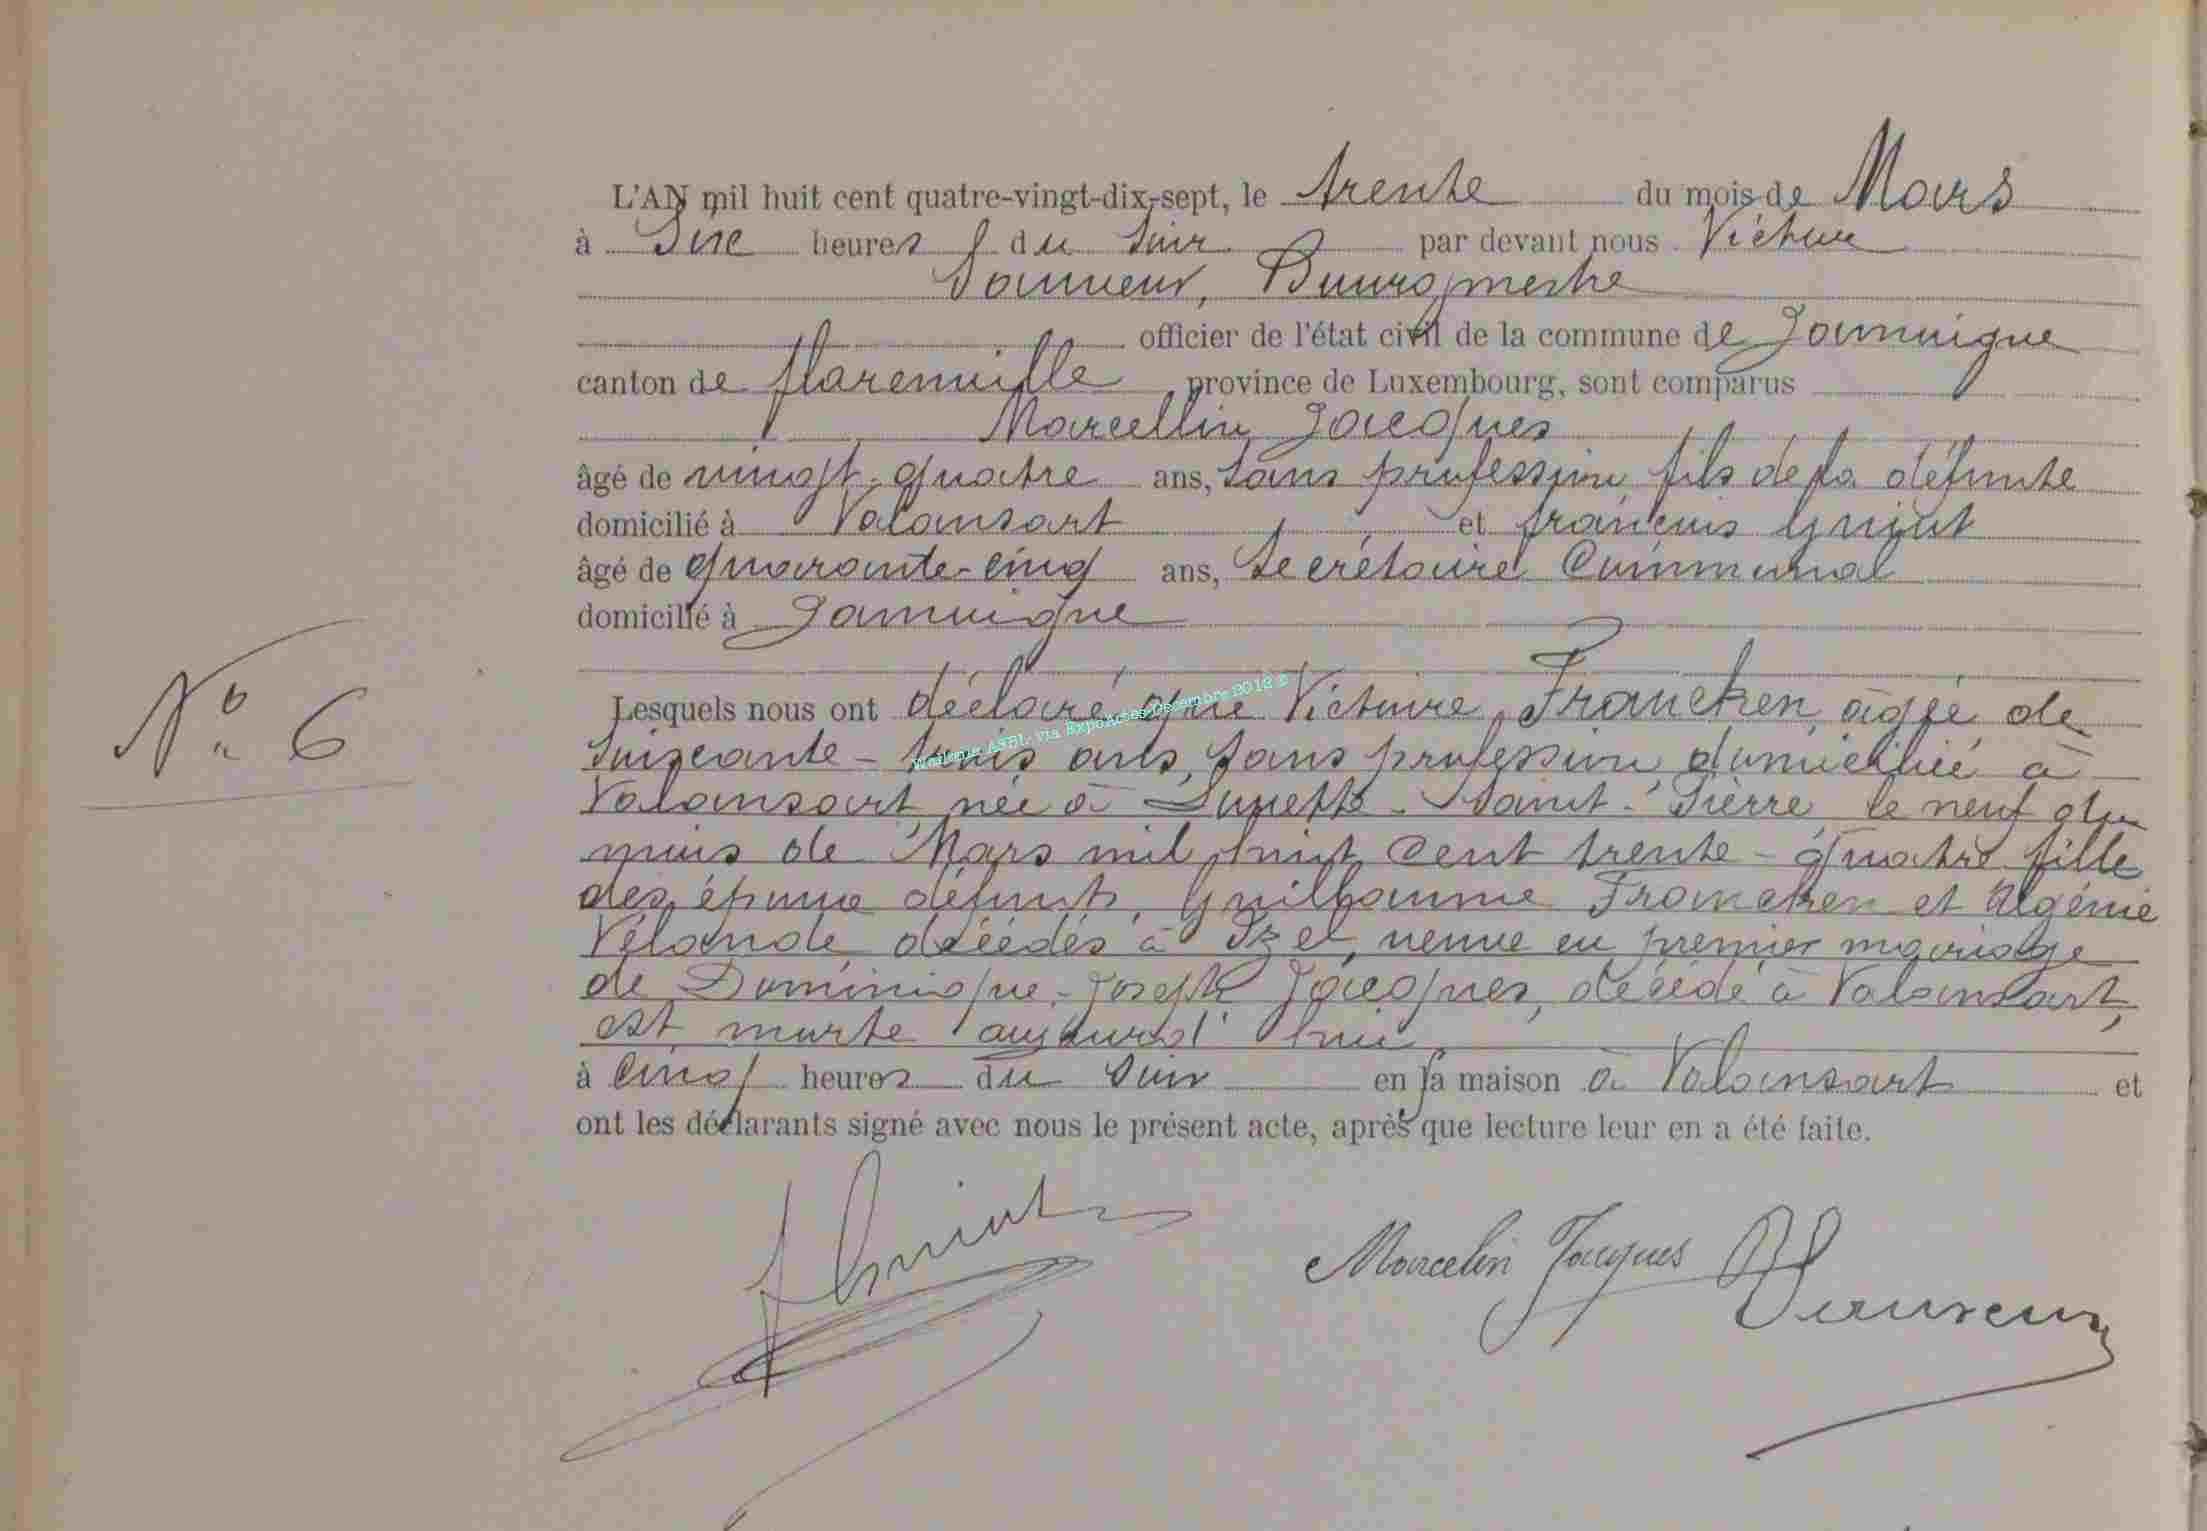 L'AN mil huit cent quatre-vingt-dix-sept, le trente du mois de Mars
à Six heures du Soir par devant nous Victor
Sauveur, Bourgmestre
officier de l'état civil de la commune de Jamoigne
canton de florenville province de Luxembourg, sont comparus
Marcellin Jacques
âgé de vingt-quatre ans, sans profession, fils de la défunte
domicilié à Valansart et françois Guiot
âgé de quarante-cinq ans, Secrétaire Communal
domicilié à Jamoigne
N° 6
Lesquels nous ont déclaré que Victoire Francken âgée de
soixante-trois ans, sans profession, domiciliée à
Valansart, née à Saint-Pierre, le neuf du
mois de Mars mil huit cent trente-quatre fille
des époux défunts, Guillaume Francken et
décédés à Izel, veuve en premier mariage
de Dominique-Joseph Jacques, décédé à Valansart,
est morte aujourd'hui
à cinq heures du soir en sa maison à Valansart et
ont les déclarants signé avec nous le présent acte, après que lecture leur en a été faite.
f Guiot Marcelin Jacques V Sauveur
via ExpoActes Decembre 2012